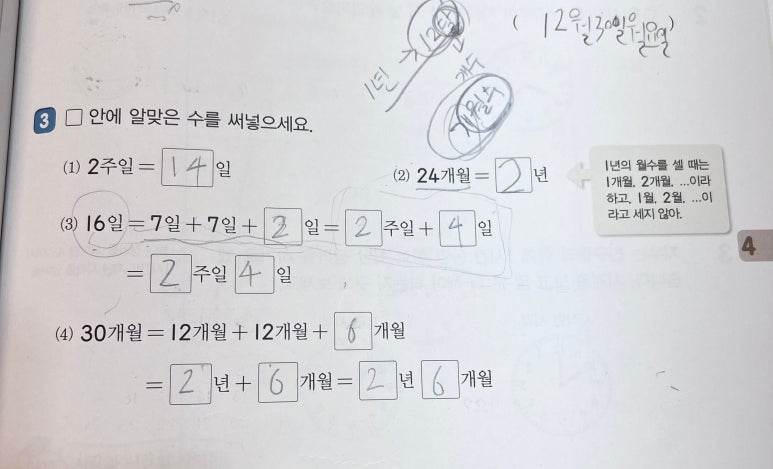 ( 12월30일월요일 )
1년 → 12달
개수
개월수
3 □ 안에 알맞은 수를 써넣으세요.
(1) 2주일 = 14 일
(2) 24개월 = 2 년
1년의 월수를 셀 때는
1개월, 2개월, …이라
하고, 1월, 2월, …이
라고 세지 않아.
(3) 16일 = 7일 + 7일 + 2 일 = 2 주일 + 4 일
= 2 주일 4 일
4
(4) 30개월 = 12개월 + 12개월 + 6 개월
= 2 년 + 6 개월 = 2 년 6 개월